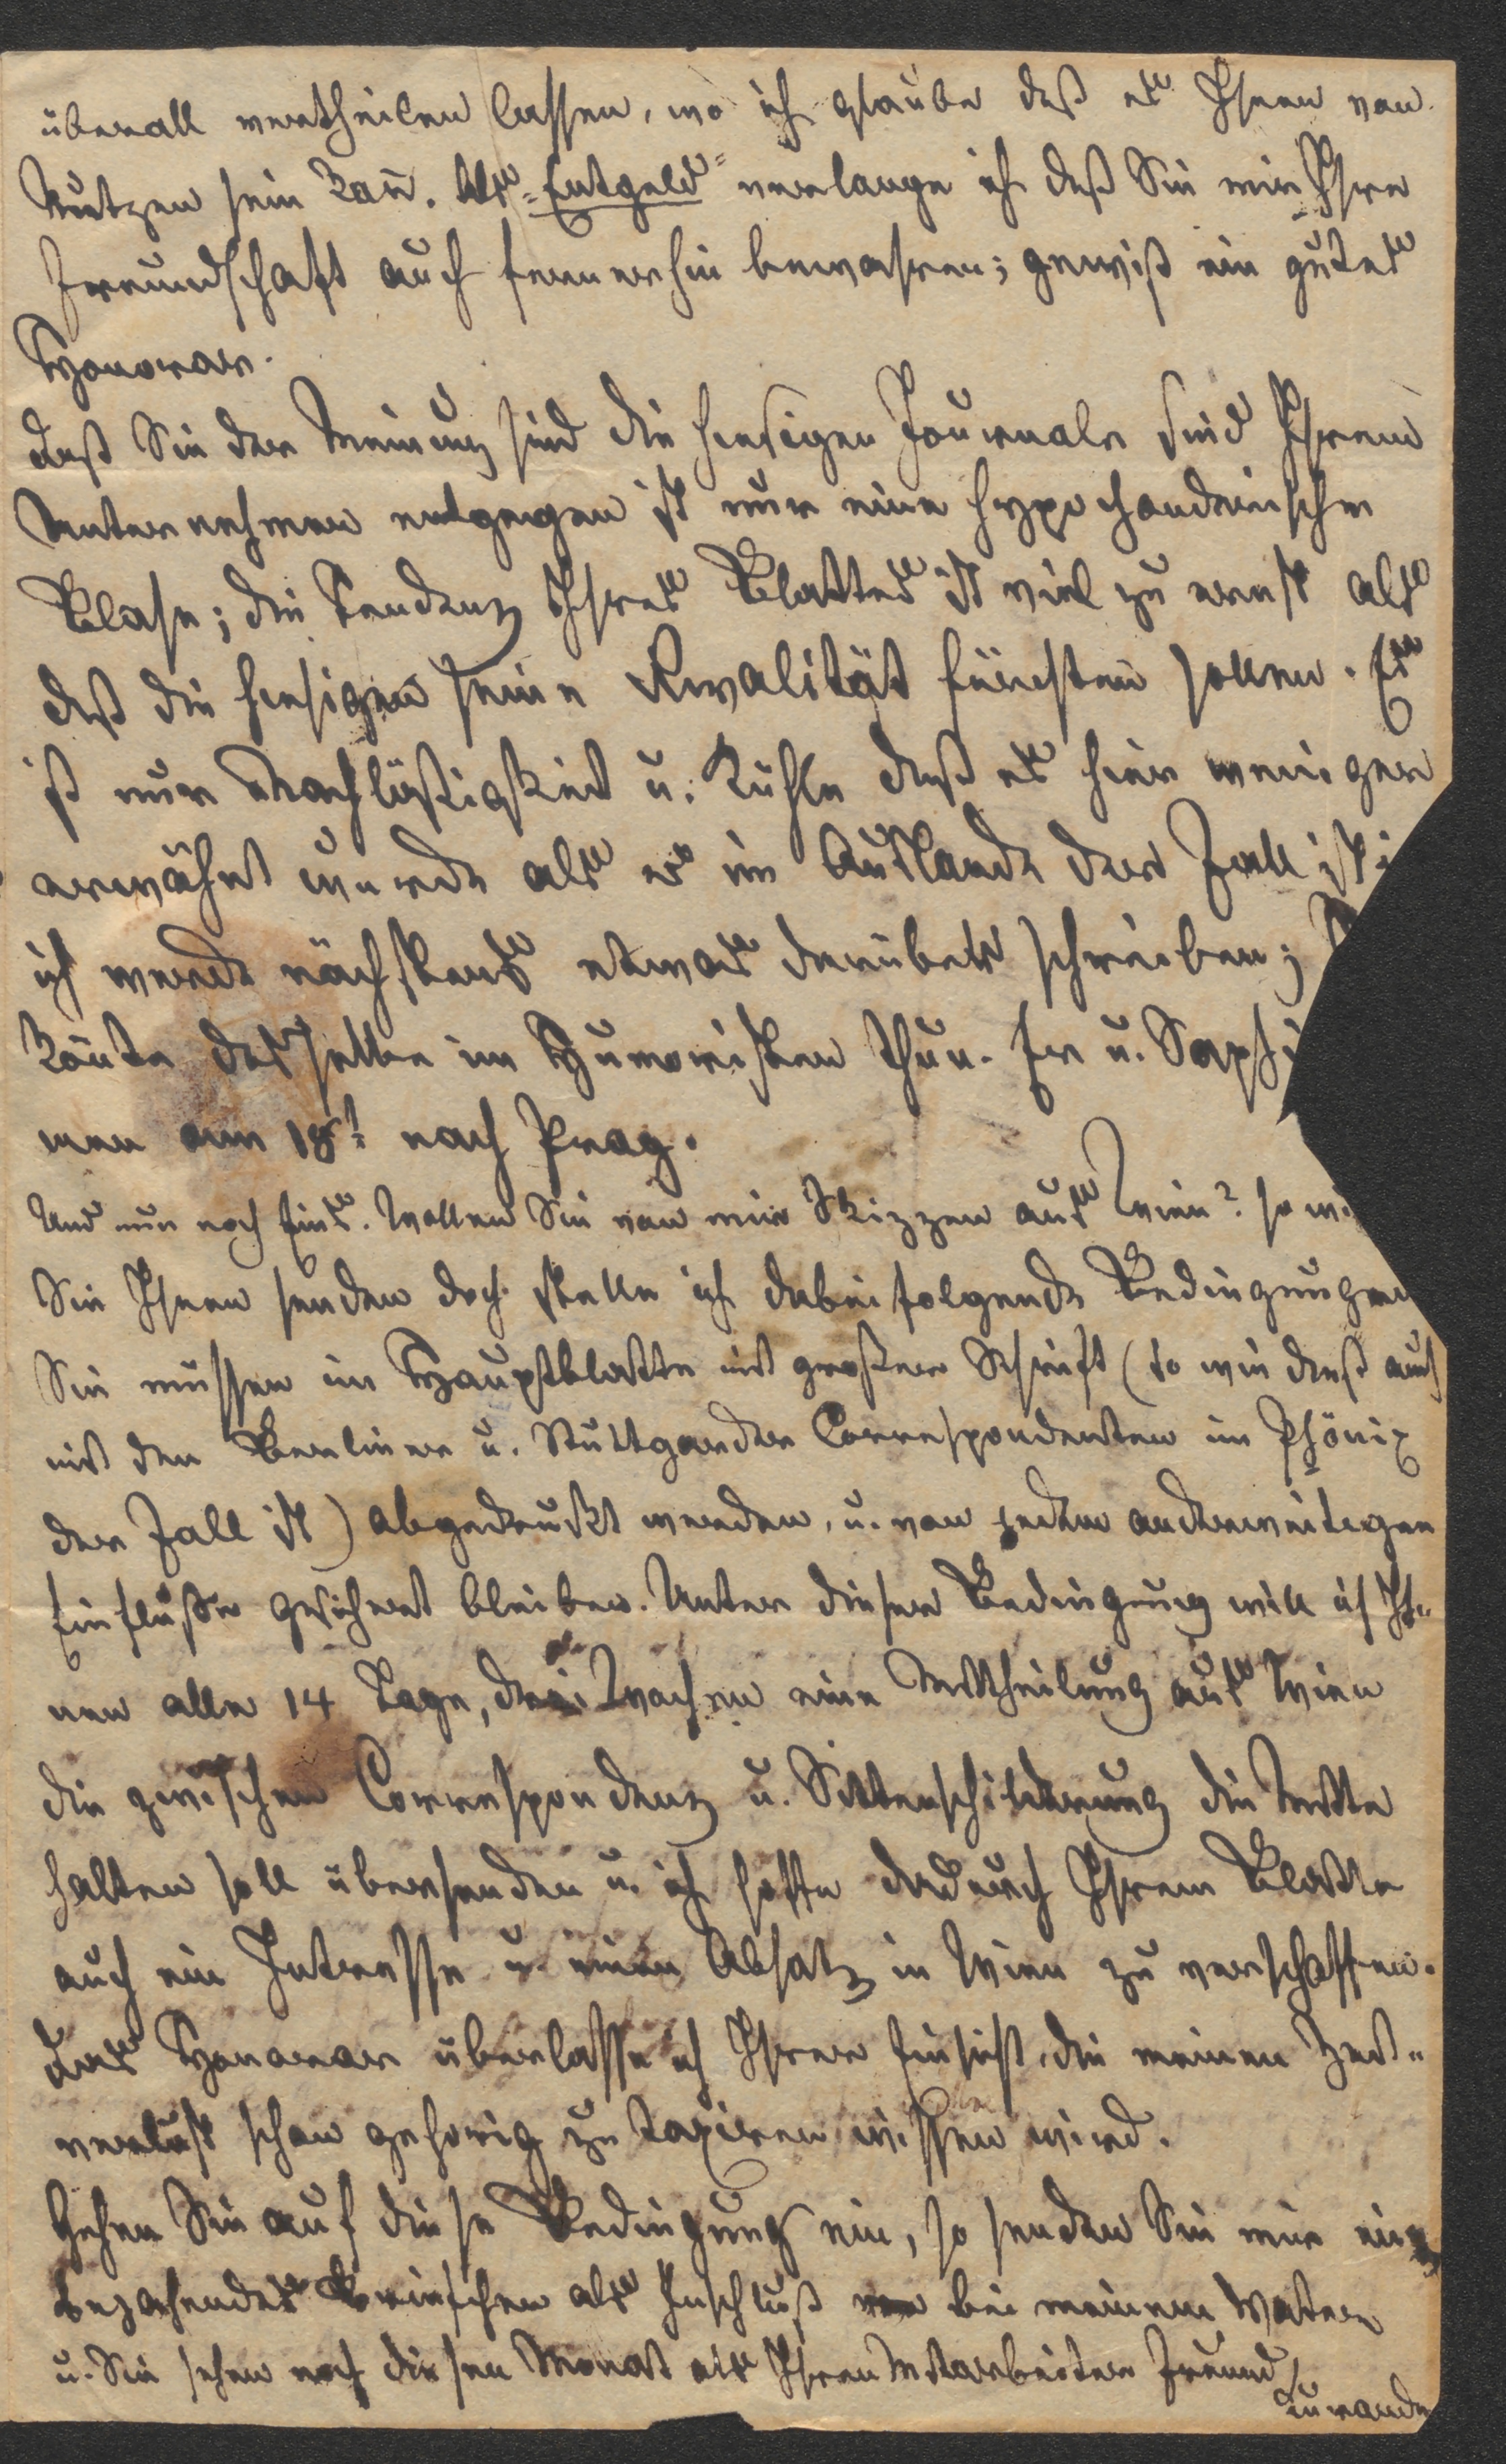 überall vertheilen lassen, wo ich glaube daß es Ihnen von
Nutzen sein kan̄. Als "Entgeld" verlange ich daß Sie mir Ihre
Freundschaft auch fernerhin bewahren; gewiß ein gutes
Honorar.
Daß Sie der Meinung sind die hiesigen Journale sind Ihrem
Unternehmen entgegen ist nur eine hypochondrische
Blase; die Tendenz Ihres Blattes ist viel zu ernst als
daß die hiesigen seine Rivalität fürchten sollen. Es
ist nur Nachläßigkeit u. Kühle daß es hier weniger
erwähnt wurde als es im Auslande der Fall ist;
ich werde nächstens etwas darüber schreiben;
kön̄te dasselbe im Humoristen thun. Er u. Saphi
men am 18t nach Prag.
Und nun noch Eins. Wollen Sie von mir Skizzen aus Wien? so wi
Sie Ihnen senden doch stelle ich dabei folgende Bedingungen
Sie müssen im Hauptblatte mit großer Schrift (so wie dieß auch
mit den Berliner u. Stuttgarder Correspondenten im Phönix
der Fall ist) abgedrukt werden, u. von jedem anderweitigen
Einfluße gesichert bleiben. Unter dieser Bedingung will ich Ih-
nen alle 14 Tage, drei Wochen eine Mittheilung aus Wien
die zwischen Correspondenz u. Sittenschilderung die Mitte
halten soll übersenden u. ich hoffe dadurch Ihrem Blatte
auch ein Interesse u. einen Absatz in Wien zu verschaffen.
Das Honorar überlasse ich Ihrer Einsicht, die meinen Zeit-
verlust schon gehörig zu taxiren wissen wird.
Gehen Sie auf diese Bedingung ein, so senden Sie mir ein
bejahendes Briefchen als Inschluß bei meinem Vater
u. Sie sehen noch diesen Monat als Ihren Mitarbeiter Freund
Kuranda